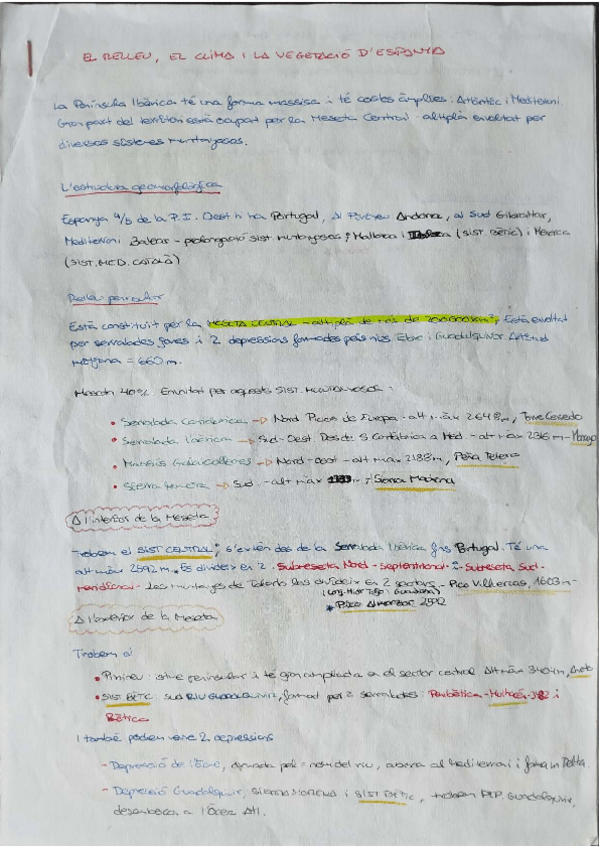 EL RELLEU, EL CLIMA I LA VEGETACIÓ D'ESPANYA
La Península Ibèrica té una forma massissa i té costes àmplies: Atlàntic i Mediterrani.
Gran part del territori està ocupat per la Meseta Central: altiplà envoltat per
diversos sistemes muntanyosos.
L'estructura geomorfològica
Espanya 4/5 de la P.I. Oest hi ha Portugal, al Pirineu Andorra, al sud Gibraltar,
Mediterrani Balear - prolongació sist. muntanyosos; Mallorca i (SIST. BÈTIC) i Menorca
(SIST. MED. CATALÀ)
Relleu peninsular
Està constituit per la MESETA CENTRAL - altiplà de més de Està envoltat
per serralades joves i 2 depressions formades pels rius Ebre i Guadalquivir. Altitud
mitjana = 660 m.
Meseta 40%. Envoltat per aquests SIST. MUNTANYOSOS:
• Serralada Cantàbrica → Nord Picos de Europa - alt màx 2648 m, Torre Cerredo
• Serralada Ibèrica → Sud-Oest. Desde S Cantàbrica a Med. - alt màx 2316 m - Moncayo
• Massís Galaicolleonès → Nord-oest - alt màx 2188 m, Peña Telera
• Sierra Morena → Sud - alt màx ; Sierra Madrona
A l'interior de la Meseta
Trobem el SIST. CENTRAL; s'extén des de la Serralada Ibèrica fins Portugal. Té una
alt màx 2592 m. Es divideix en 2: Submeseta Nord - Septentrional i Submeseta Sud-
meridional. Les muntanyes de Toledo les divideix en 2 sectors - Pico Villuercas, 1603 m -
* Pico Almanzor 2592
A l'exterior de la Meseta
Trobem a:
• Pirineu: istme peninsular i té gran amplada en el sector central. Alt màx 3404 m, Aneto
• SIST. BÈTIC: sud RIU GUADALQUIVIR, format per 2 serralades: Penibètica - Mulhacén i
Bètica
I també podem veure 2 depressions
- Depressió de l'Ebre, pel nom del riu, aboca al Mediterrani i forma un Delta.
- Depressió Guadalquivir, SIERRA MORENA i SIST. BÈTIC, trobem Guadalquivir,
desemboca a l'Oceà Atl.